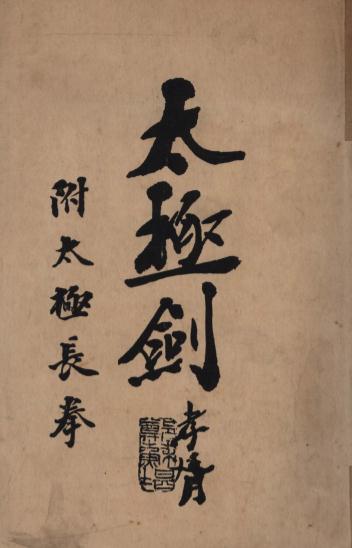 太極劍
孝胥
附太極長拳